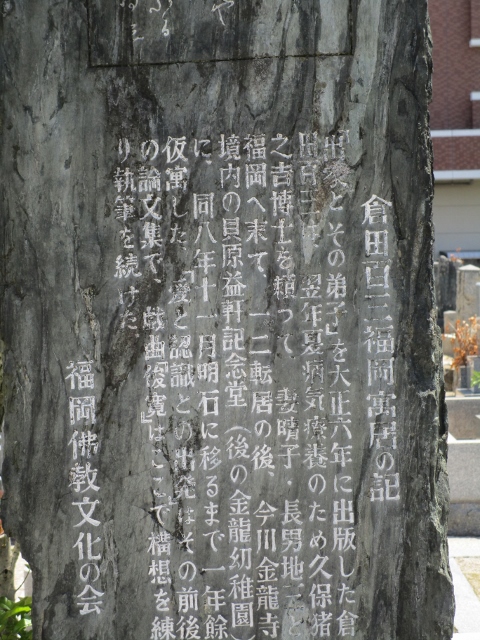 倉田百三福岡寓居の記
『出家とその弟子』を大正六年に出版した倉
田百三は、翌年夏病気療養のため久保猪
之吉博士を頼って、妻晴子・長男地三と
福岡へ来て、一二転居の後、今川金龍寺
境内の貝原益軒記念堂（後の金龍幼稚園）
に、同八年十一月明石に移るまで一年餘
仮寓した。『愛と認識との出発』はその前後
の論文集で、戯曲『俊寛』はここで構想を練
り執筆を続けた
福岡佛教文化の会